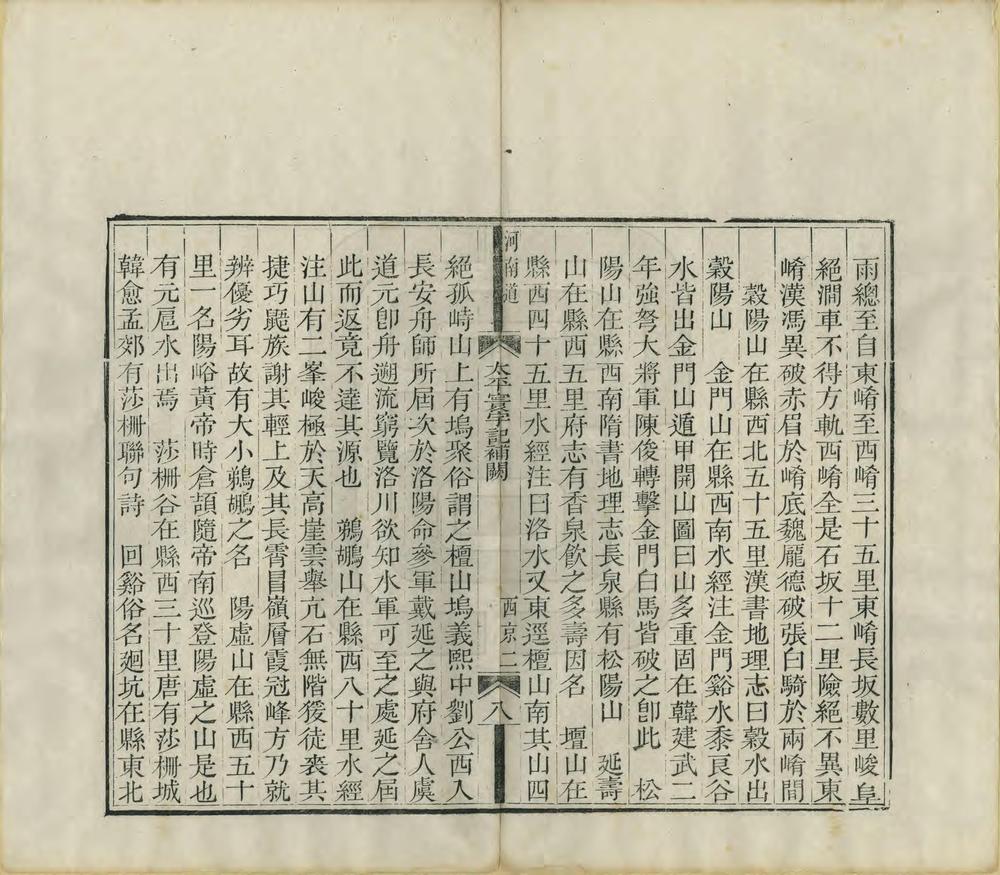 雨總至自東崤至西崤三十五里東崤長坂數里峻阜
絕澗車不得方軌西崤全是石坂十二里險絕不異東
崤漢馮異破赤眉於崤底魏龐德破張白騎於兩崤間
穀陽山在縣西北五十五里漢書地理志曰穀水出
穀陽山　金門山在縣西南水經注金門谿水黍良谷
水皆出金門山遁甲開山圖曰山多重固在韓建武二
年強弩大將軍陳俊轉擊金門白馬皆破之卽此　松
陽山在縣西南隋書地理志長泉縣有松陽山　延壽
山在縣西五里府志有香泉飮之多壽因名　壇山在
縣西四十五里水經注曰洛水又東逕檀山南其山四
河南道
太平寰宇記補闕
西京二
八
絕孤峙山上有塢聚俗謂之檀山塢義熙中劉公西入
長安舟師所屆次於洛陽命參軍戴延之與府舍人虞
道元卽舟遡流窮覽洛川欲知水軍可至之處延之屆
此而返竟不達其源也　鵜鶘山在縣西八十里水經
注山有二峯峻極於天高崖雲舉亢石無階猨徒喪其
捷巧鼯族謝其輕上及其長霄冒嶺層霞冠峰方乃就
辨優劣耳故有大小鵜鶘之名　陽虛山在縣西五十
里一名陽峪黃帝時倉頡隨帝南巡登陽虛之山是也
有元扈水出焉　莎柵谷在縣西三十里唐有莎柵城
韓愈孟郊有莎柵聯句詩　回谿俗名廻坑在縣東北